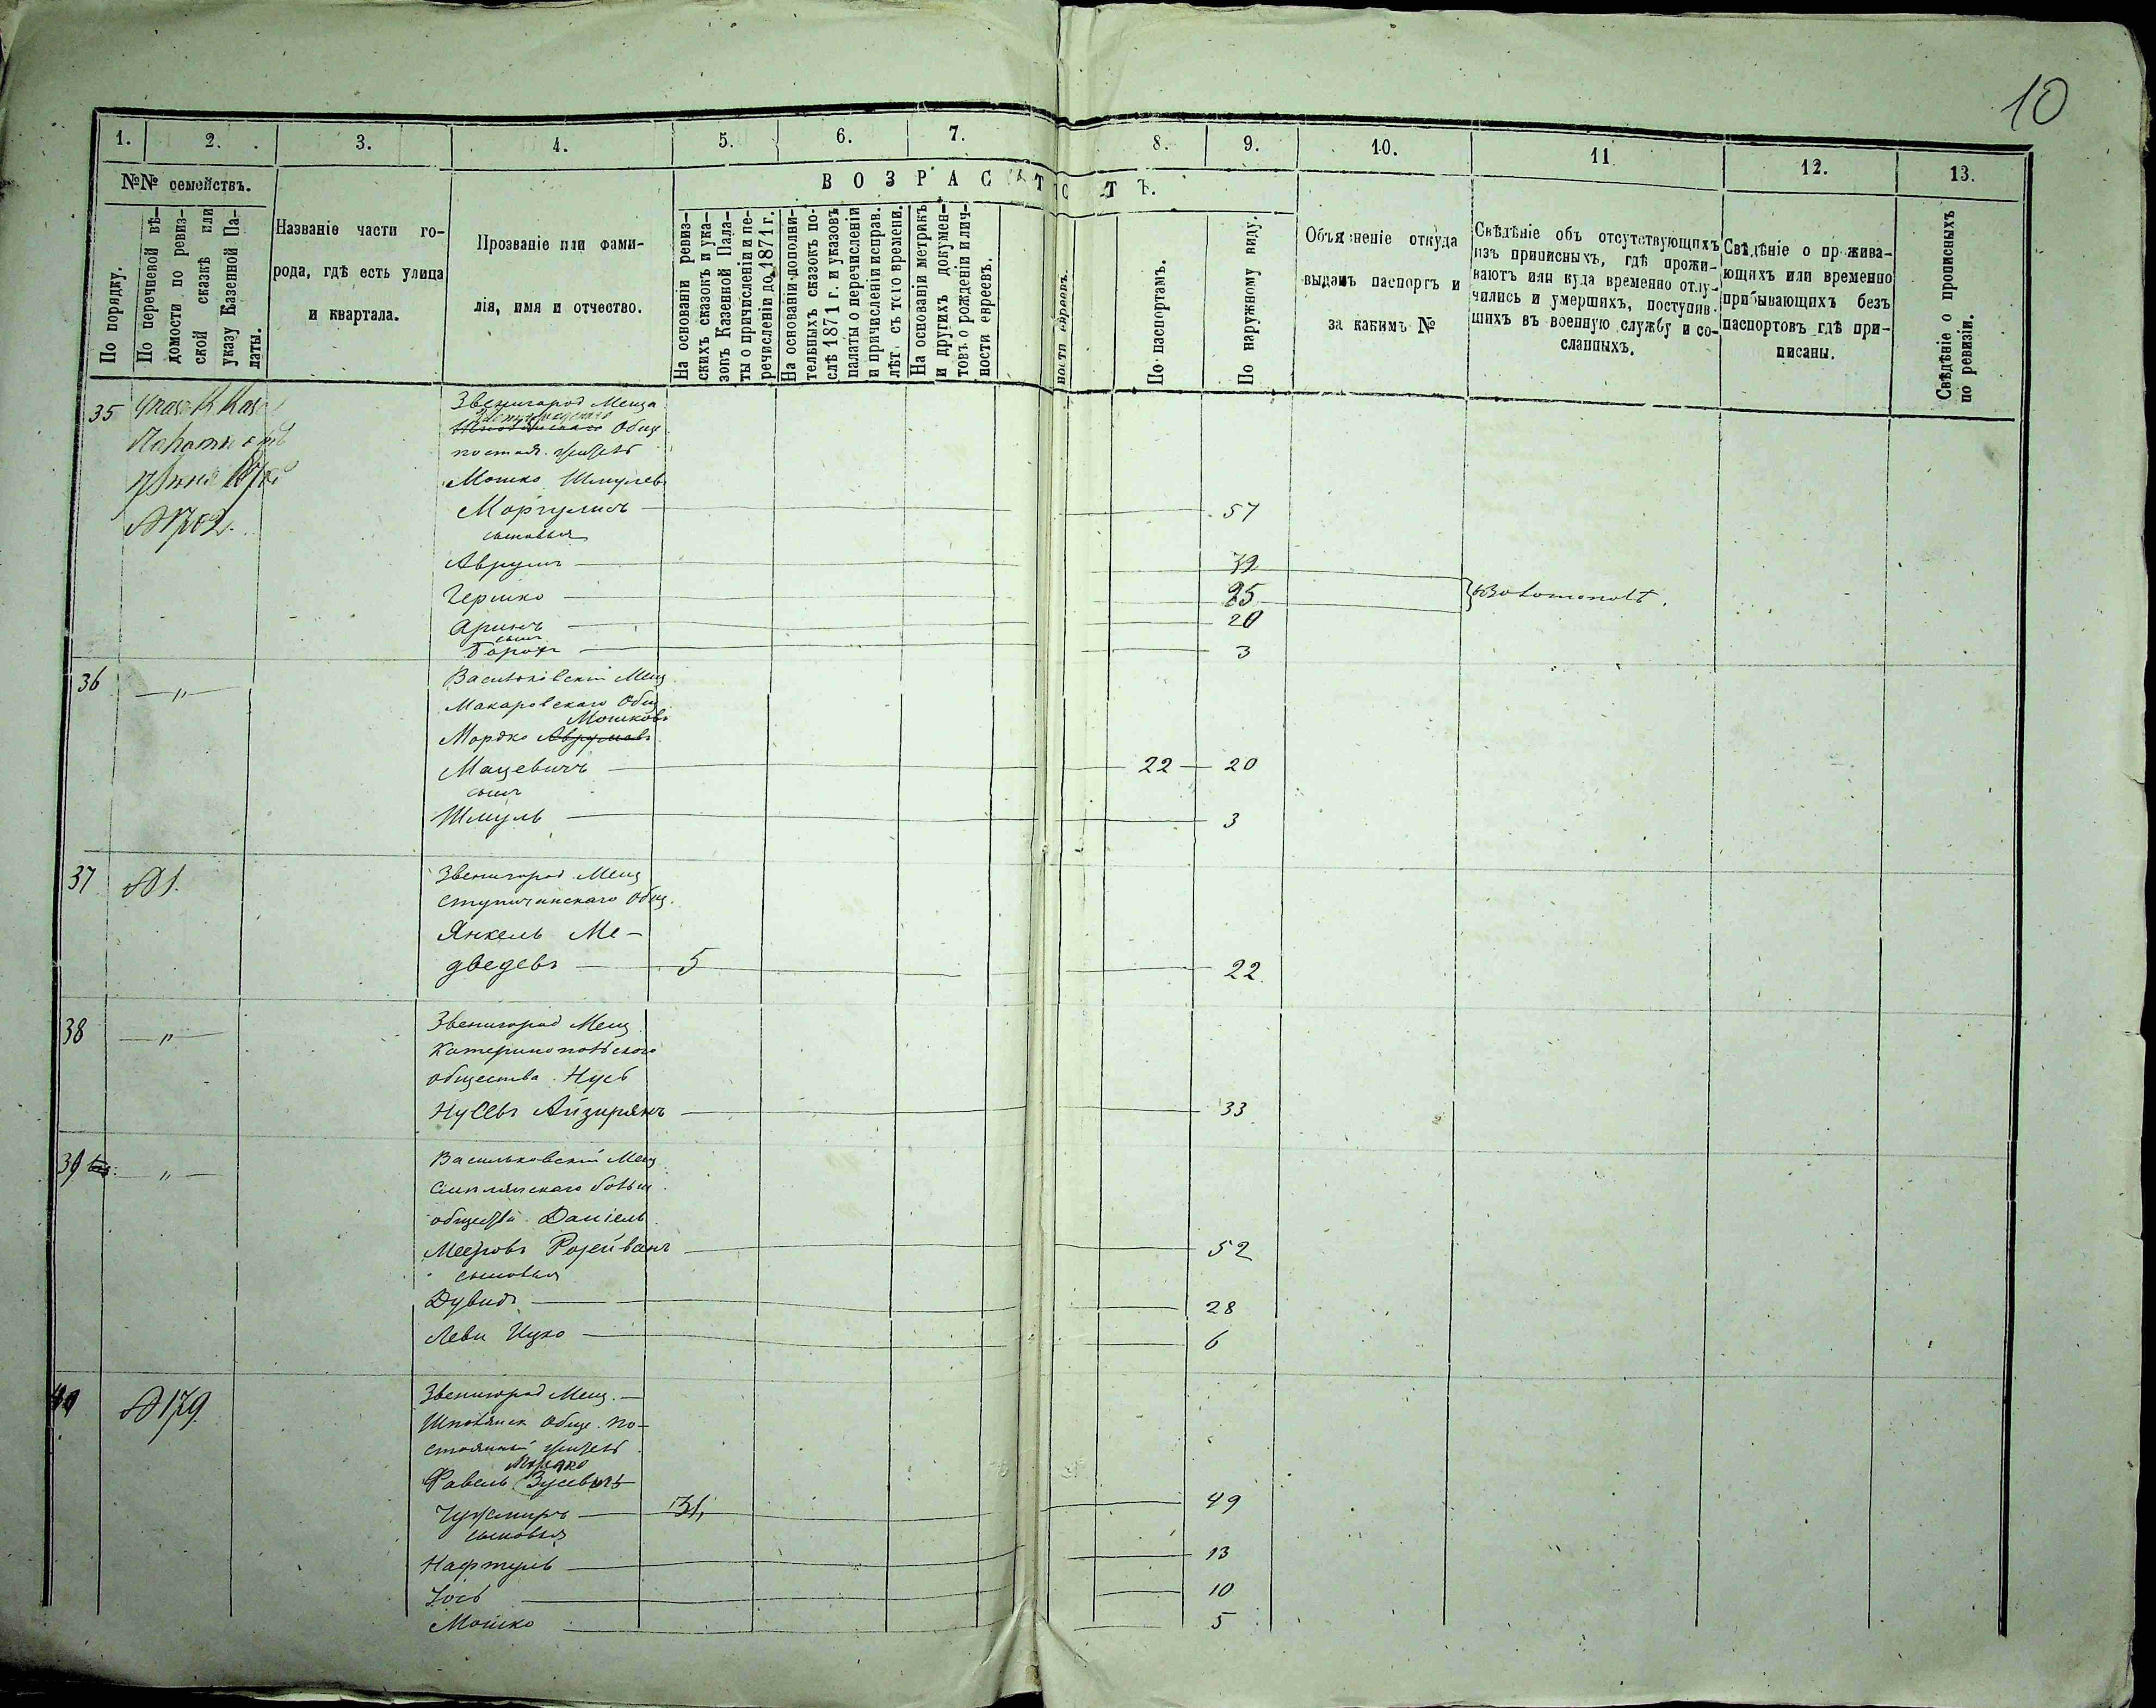 10
1. 2. 3. 4. 5. 6. 7. 8. 9. 10. 11 12. 13.
№№ семействъ.
По порядку.
По перечневой вѣ-
домости по ревиз-
ской сказкѣ или
указу Казенной Па-
латы.
Названіе части го-
рода, гдѣ есть улица
и квартала.
Прозваніе или фами-
лія, имя и отчество.
ВОЗРАСТЪ.
На основаніи ревиз-
скихъ сказокъ и ука-
зовъ Казенной Пала-
ты о причисленіи и пе-
речисленіи до 1871 г.
На основаніи дополни-
тельныхъ сказокъ по-
слѣ 1871 г. и указовъ
палаты о перечисленіи
и причисленіи исправ.
лѣт. съ того времени.
На основаніи метрикъ
и другихъ докумен-
товъ о рожденіи и лич-
ности евреевъ.
ности евреевъ.
По паспортамъ.
По наружному виду.
Объясненіе откуда
выданъ паспортъ и
за какимъ №
Свѣдѣніе объ отсутствующихъ
изъ приписныхъ, гдѣ прожи-
ваютъ или куда временно отлу-
чились и умершихъ, поступив-
шихъ въ военную службу и со-
сланныхъ.
Свѣдѣніе о прожива-
ющихъ или временно
прибывающихъ безъ
паспортовъ гдѣ при-
писаны.
Свѣдѣніе о прописныхъ
по ревизіи.
35
Звенигород Меща
Обще
постоя. жител
Мошко Шмулев
Моргулисъ 57
сыновья
Аврумъ 32
Гершко 25
Аринъ 20
сынъ
Борох 3
36 — " —
Васильковскій Мещ
Макаровскаго Общ
Мошковъ
Мордко Аврумовъ
Мацевичъ 22 20
сынъ
Шмуль 3
37 №1.
Звенигород Мещ
Общ.
Янкель Ме-
дведевъ 5 22
38 — " —
Звенигород Мещ
Катеринопольского
общества Нусь
Нусевъ 33
39 — " —
Васильковскій Мещ
общества Даніель
Мееровъ 52
сыновья
Дувидъ 28
Леви Ицко 6
40 №179.
Звенигород Мещ. —
Шполянск Обще. по-
стоянный жител
Мошко
Фавель Зусевъ
31, 49
сыновья
Нафтуль 13
Іось 10
Мошко 5